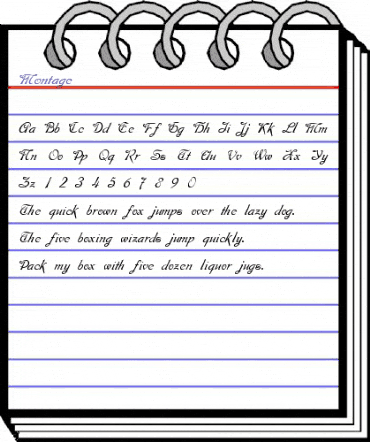 Montage
Aa Bb Cc Dd Ee Ff Gg Hh Ii Jj Kk Ll Mm
Nn Oo Pp Qq Rr Ss Tt Uu Vv Ww Xx Yy
Zz 1 2 3 4 5 6 7 8 9 0
The quick brown fox jumps over the lazy dog.
The five boxing wizards jump quickly.
Pack my box with five dozen liquor jugs.